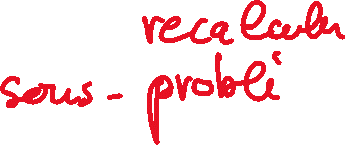 recalculer
sous - problè